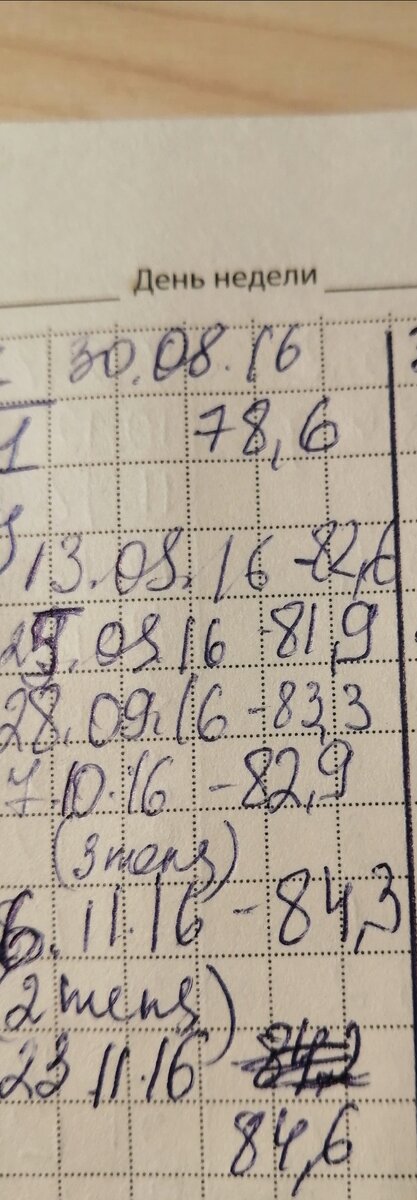 День недели
30.08.16
1 78,6
13.09.16 -82,6
25.09.16 -81,9
28.09.16 -83,3
7.10.16 -82,9
(3 теля)
6.11.16 -84,3
(2 теля)
23 11.16 84,2
84,6